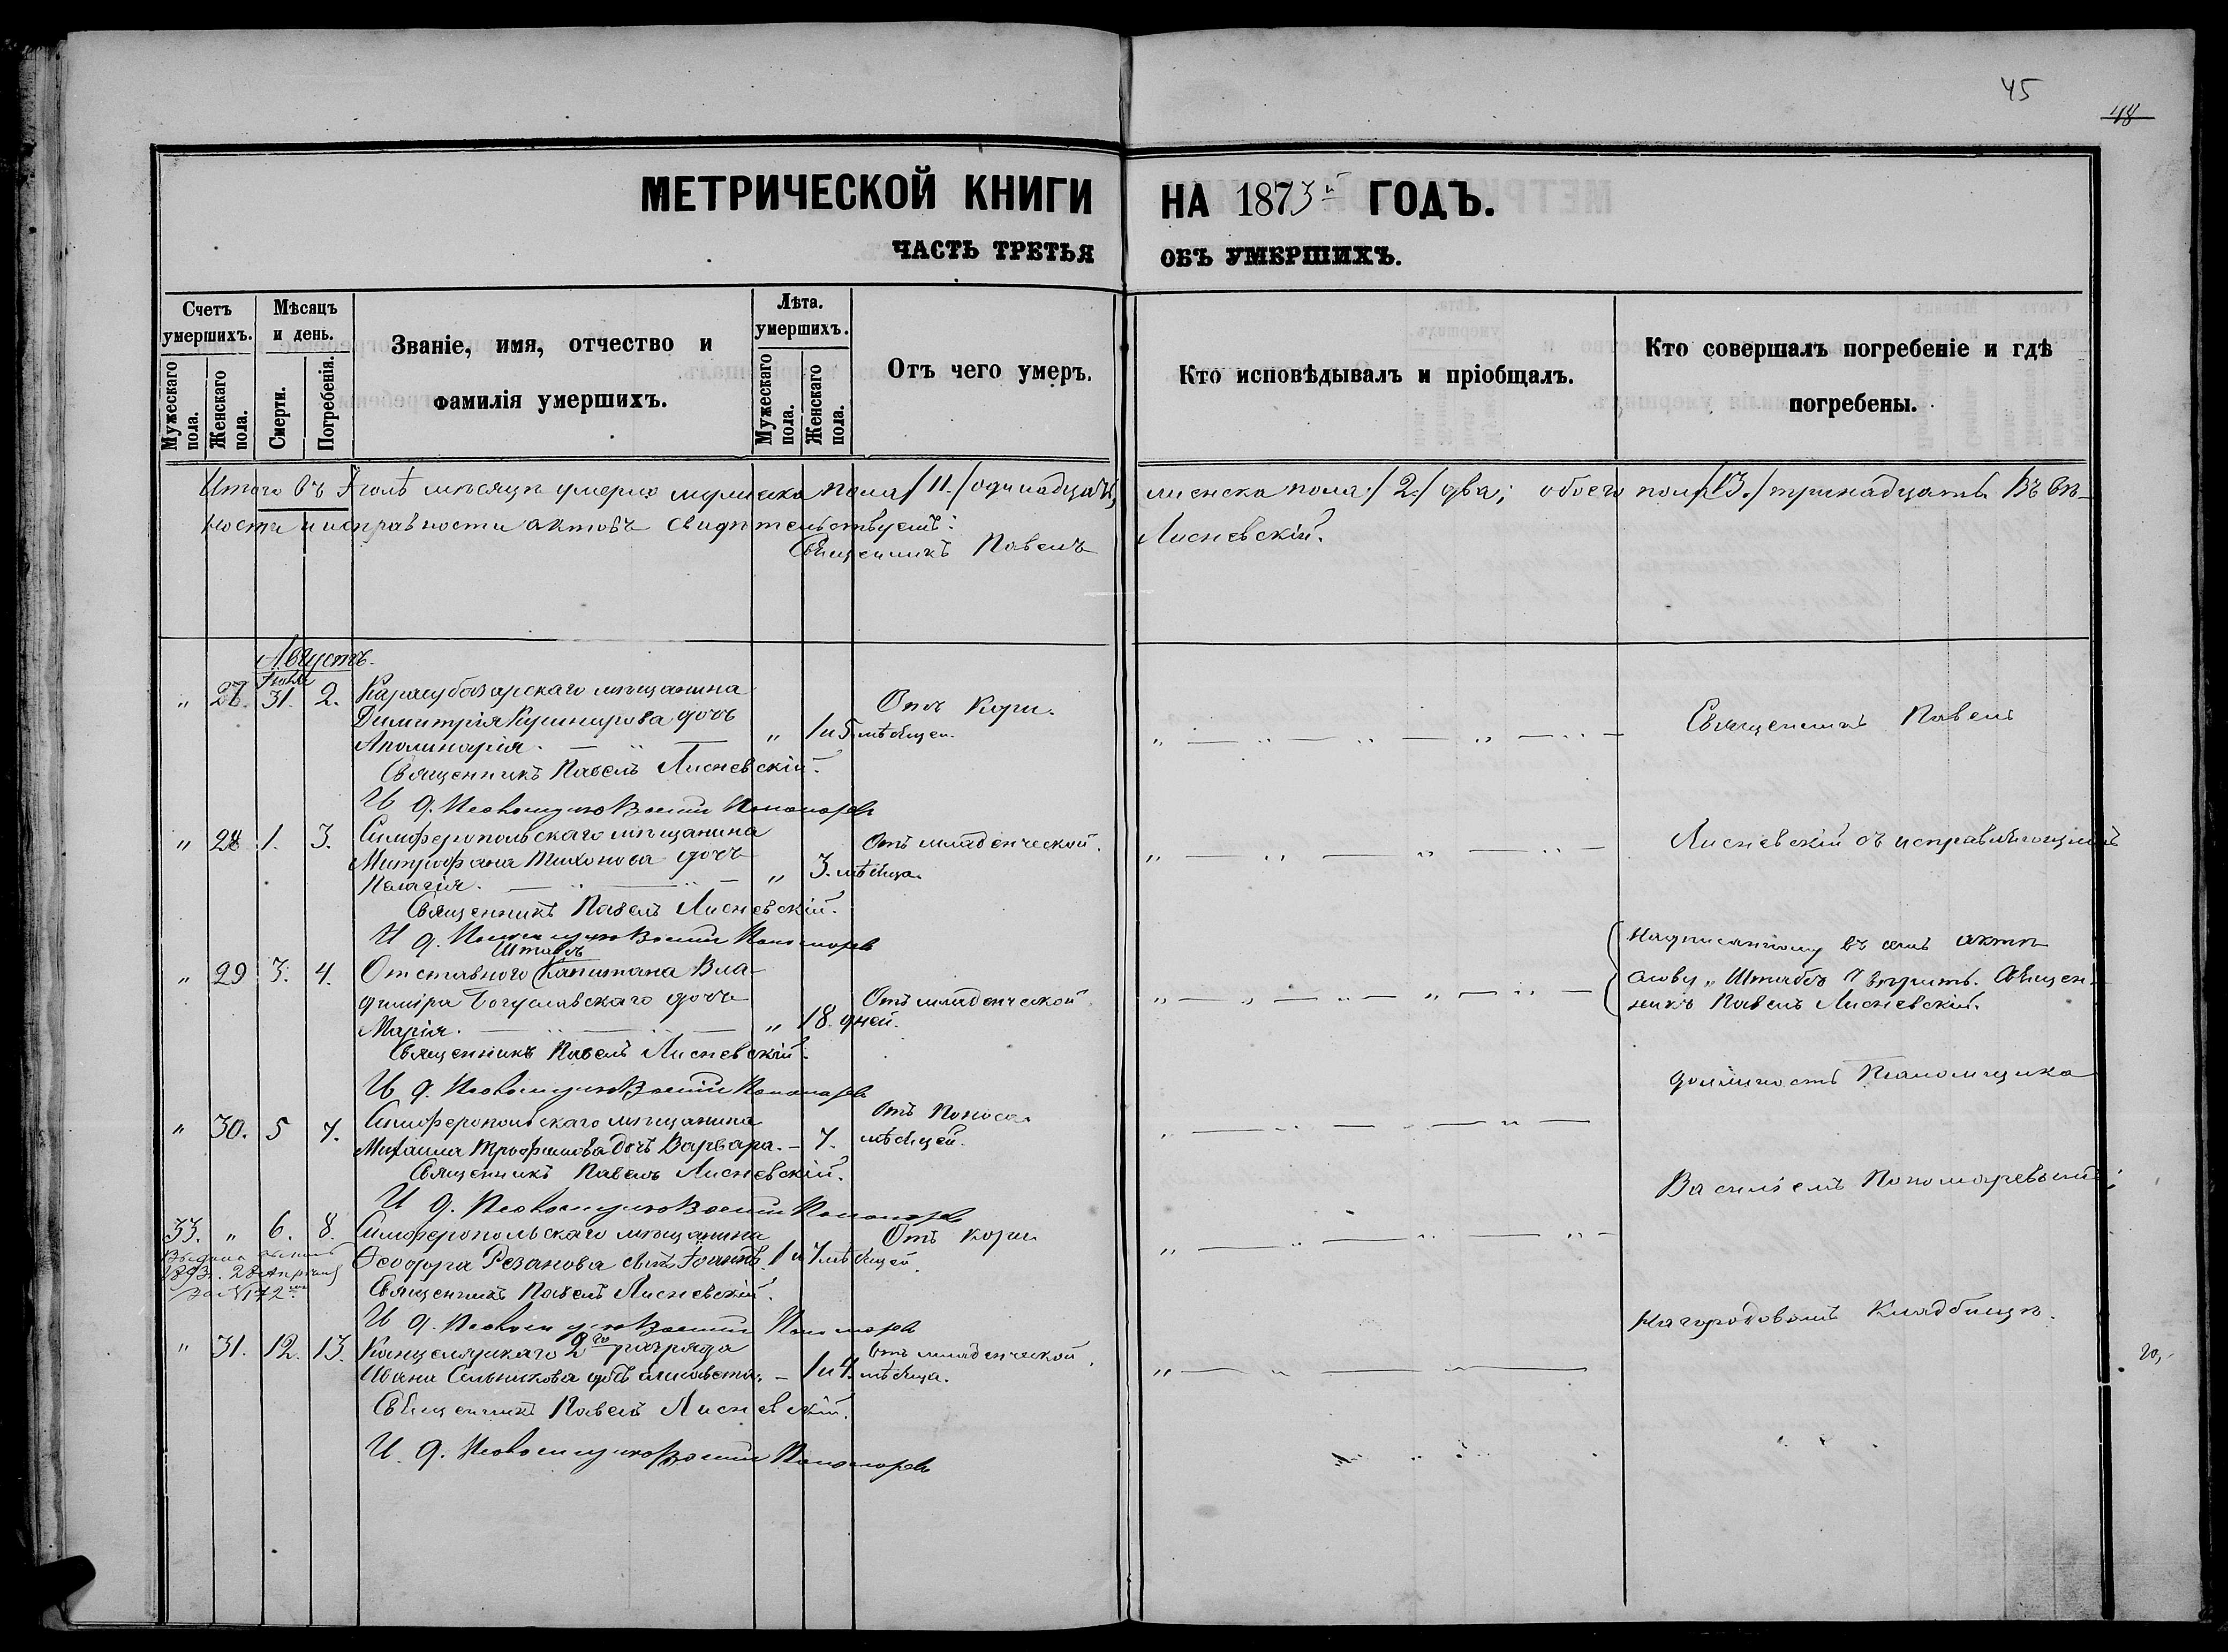 45
48
МЕТРИЧЕСКОЙ КНИГИ НА 1873й ГОДЪ.
ЧАСТЬ ТРЕТЬЯ ОБЪ УМЕРШИХЪ.
Счетъ умершихъ.
Мужескаго пола.
Женскаго пола.
Мѣсяцъ и день.
Смерти.
Погребенія.
Званіе, имя, отчество и фамилія умершихъ.
Лѣта. умершихъ.
Мужескаго пола.
Женскаго пола.
Отъ чего умеръ.
Кто исповѣдывалъ и пріобщалъ.
Кто совершалъ погребеніе и гдѣ погребены.
Итого въ Іюлѣ мѣсяцѣ умерло мужеска пола /11./ одинадцать, женска пола /2./ два; обоего пола /13./ тринадцать. Въ вѣ-
ности и исправности актовъ свидѣтельствуемъ:
Священникъ Павелъ Лисневскій.
Августъ.
Іюля
" 27. 31. 2. Карасубазарскаго мѣщанина
Димитрія Кушнирова дочь
Аполинарія. " 1 и 5 мѣсяцеи. Отъ Кори.
Священникъ Павелъ Лисневскій.
И. д. Псаломщика Василій Пономаревъ
" 28. 1. 3. Симферопольскаго мѣщанина
Митрофана Тихонова дочь
Палагія. " 3. мѣсяца. Отъ младенческой.
Священникъ Павелъ Лисневскій.
И д. Псаломщика Василій Пономаревъ
Штабсъ
" 29 3. 4. Отставного Капитана Вла-
диміра Богуславскаго дочь
Марія. " 18. дней. Отъ младенческой
Священникъ Павелъ Лисневскій.
И. д. Псаломщика Василій Пономаревъ
" 30. 5 7. Симферопольскаго мѣщанина
Михаила Трофимова дочь Варвара. – 7. мѣсяцей. Отъ Поноса.
Священникъ Павелъ Лисневскій.
И д. Псаломщика Василій Пономаревъ
33. " 6. 8. Симферопольскаго мѣщанина
Ѳеодора Резанова сынъ Іоаннъ. 1 и 7 мѣсяцей. Отъ Кори
Выдана
1893. 28 Апрѣля
за №172
Священникъ Павелъ Лисневскій.
И д. Псаломщика Василій Пономаревъ
" 31. 12. 13. Канцелярскаго 2го разряда
Ивана Сальникова дочь – 1 и 4. мѣсяца. Отъ младенческой.
Священникъ Павелъ Лисневскій.
И. д. Псаломщика Василій Пономаревъ
Священникъ Павелъ
Лисневскій съ исправляющимъ
Надписанному въ семъ актѣ
слову "Штабсъ" вѣрить. Священ-
никъ Павелъ Лисневскій.
должность Псаломщика
Василіемъ Пономаревымъ;
На городовомъ Кладбищѣ.
20,-